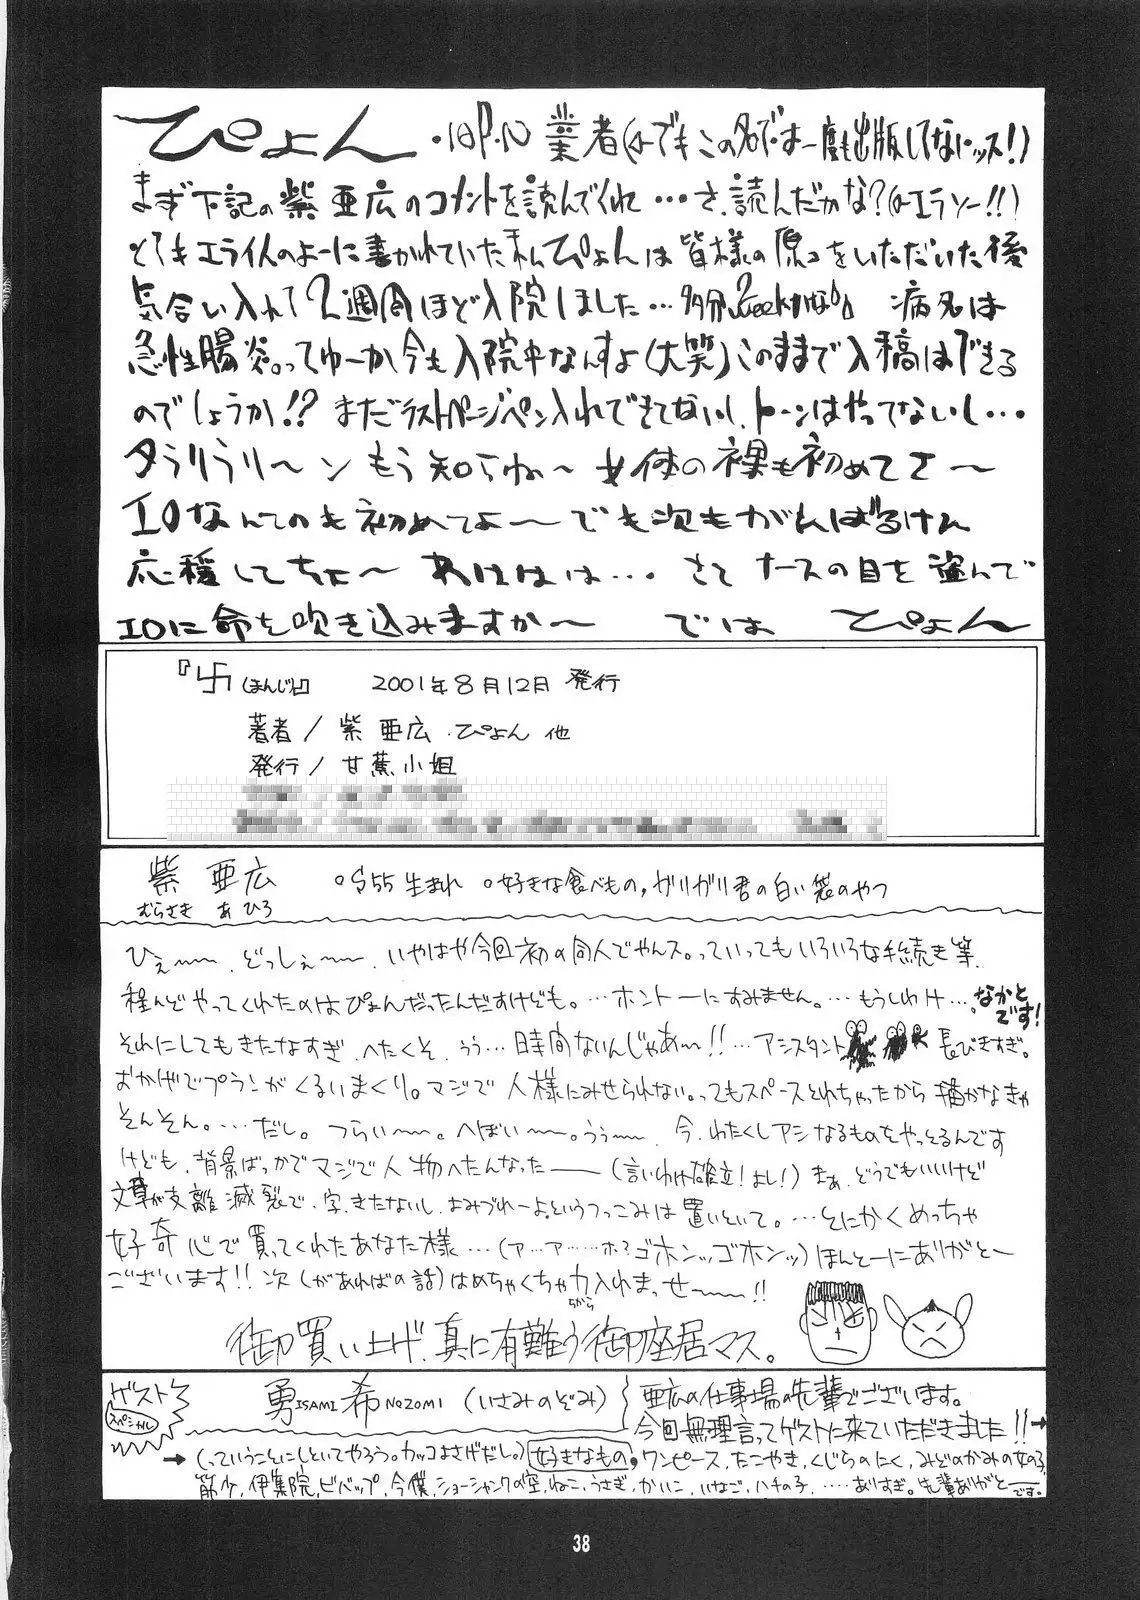 ぴょん ・旧P.N 業者(←でもこの名では一度も出版してないッス!)
まず下記の紫亜広のコメントを読んでくれ…さ、読んだかな?(←エラソー!!)
とてもエライ人のよーに書かれていた私ぴょんは皆様の原コをいただいた後
気合い入れて2週間ほど入院しました… 病名は
急性腸炎。ってゆーか今も入院中なんすよ(大笑)このままで入稿はできる
のでしょうか!? まだラストページペン入れできてないし、トーンはやってないし…
タラリラリ〜ン もう知らね〜 女体の裸も初めてさ〜
エロなんてのも初めてよ〜 でも次もがんばるけん
応援してちょ〜 あははは… さて ナースの目を盗んで
エロに命を吹き込みますか〜 では ぴょん
『卐(まんじ)』 2001年8月12日 発行
著者/紫 亜広・ぴょん 他
発行/甘蕉小姐
紫 亜広 oS55生まれ o好きな食べもの,ガリガリ君の白い袋のやつ
むらさき あひろ
ひぇ〜〜、どっしぇ〜〜、いやはや今回初の同人でやんス。っていってもいろいろな手続き等、
殆んどやってくれたのはぴょんだったんだすけども。…ホントーにすみません。…もうしわけ…なかとです!
それにしてもきたなすぎ、へたくそ、うぅ…時間ないんじゃあ〜!!…アシスタント 長びきすぎ。
おかげでプランがくるいまくり。マジで人様にみせられない。ってもスペースとれちゃったから描かなきゃ
そんそん。…だし。つらい〜〜。へぼい〜〜。うぅ〜〜、今、わたくしアシなるものをやっとるんです
けども、背景ばっかでマジで人物へたんなった――(言いわけ確立!よし!)まぁ、どうでもいいけど
文章が支離滅裂で、字、きたないし、よみづれーよというつっこみは置いといて。…とにかくめっちゃ
好奇心で買ってくれたあなた様…(ア…ア……ホ?ゴホンッッゴホンッ)ほんとーにありがとー
ございます!!次(があればの話)はめちゃくちゃ力入れまっせ〜〜!!
ちから
御買い上げ、真に有難う御座居マス。
ゲスト スペシャル 勇ISAMI希NOZOMI (いさみのぞみ) 亜広の仕事場の先輩でございます。
今回無理言ってゲストに来ていただきました!!→
→(っていうことにしといてやろう。カッコよさげだし。)好きなもの,ワンピース、たこやき、くじらのにく、みどりのかみの女の子
筋少、伊集院、ビバップ、今僕、ショーシャンクの空、ねこ、うさぎ、かいこ、いなご、ハチの子、……ありすぎ。先輩ありがとーです。
38